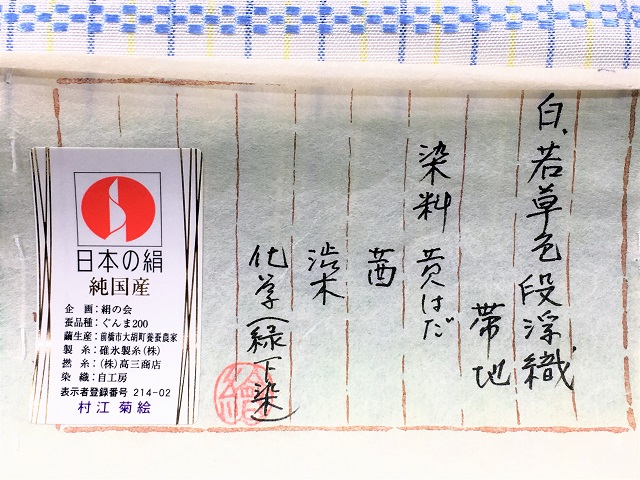 白、若草色段浮織
帯地
染料 黄はだ
茜
渋木
化学(緑下染)
日本の絹
純国産
企画:絹の会
蚕品種:ぐんま200
繭生産:前橋市大胡町養蚕農家
製糸:碓氷製糸(株)
撚糸:(株)高三商店
染織:自工房
表示者登録番号 214-02
村江 菊絵